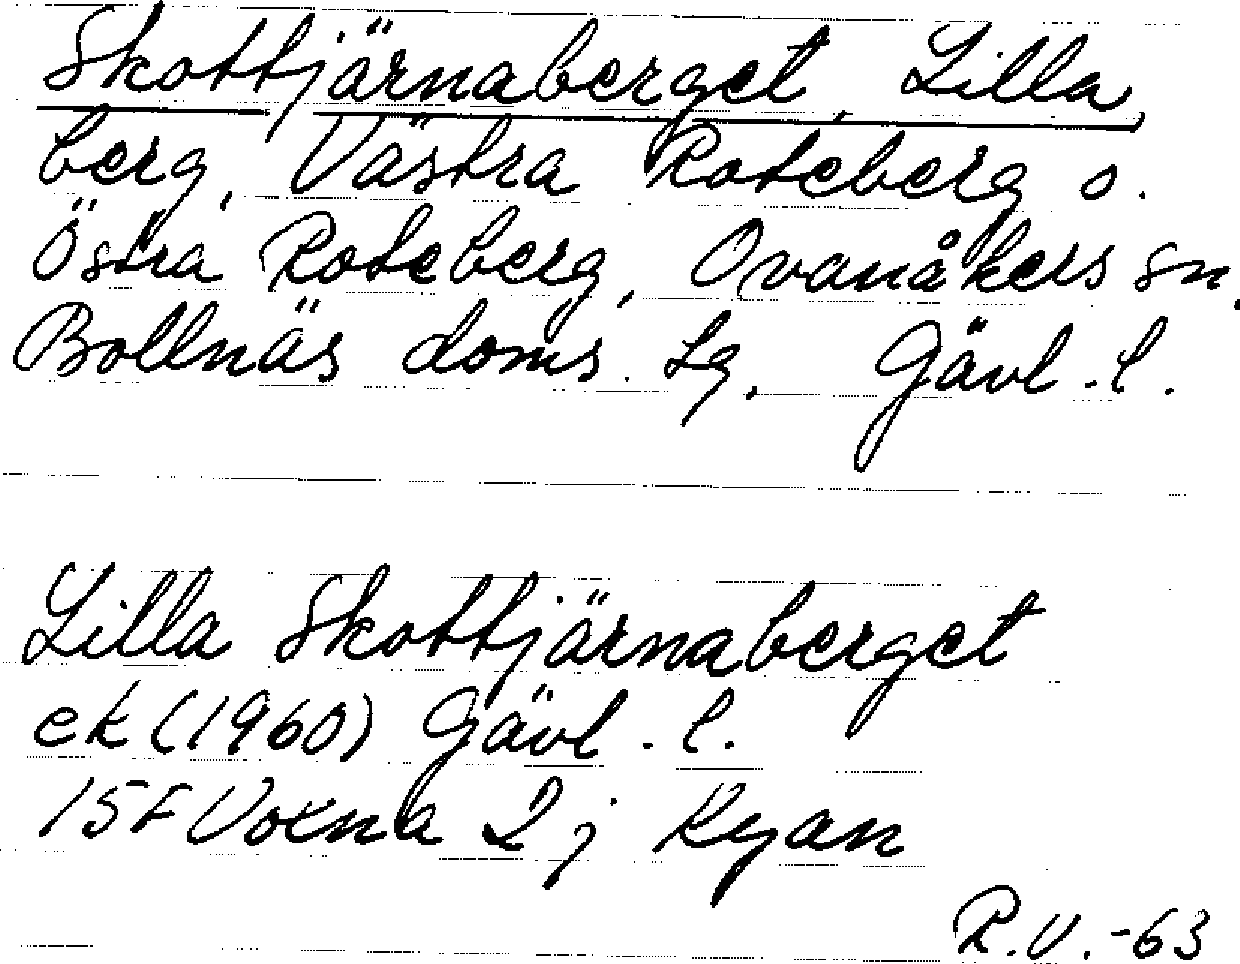 Skottjärnaberget, Lilla
berg, Västra Roteberg o.
Östra Roteberg, Ovanåkers sn,
Bollnäs doms. lg, Gävl. l.
Lilla Skottjärnaberget
ek (1960) Gävl. l.
15F Voxna 2j Ryan
R.V.-63